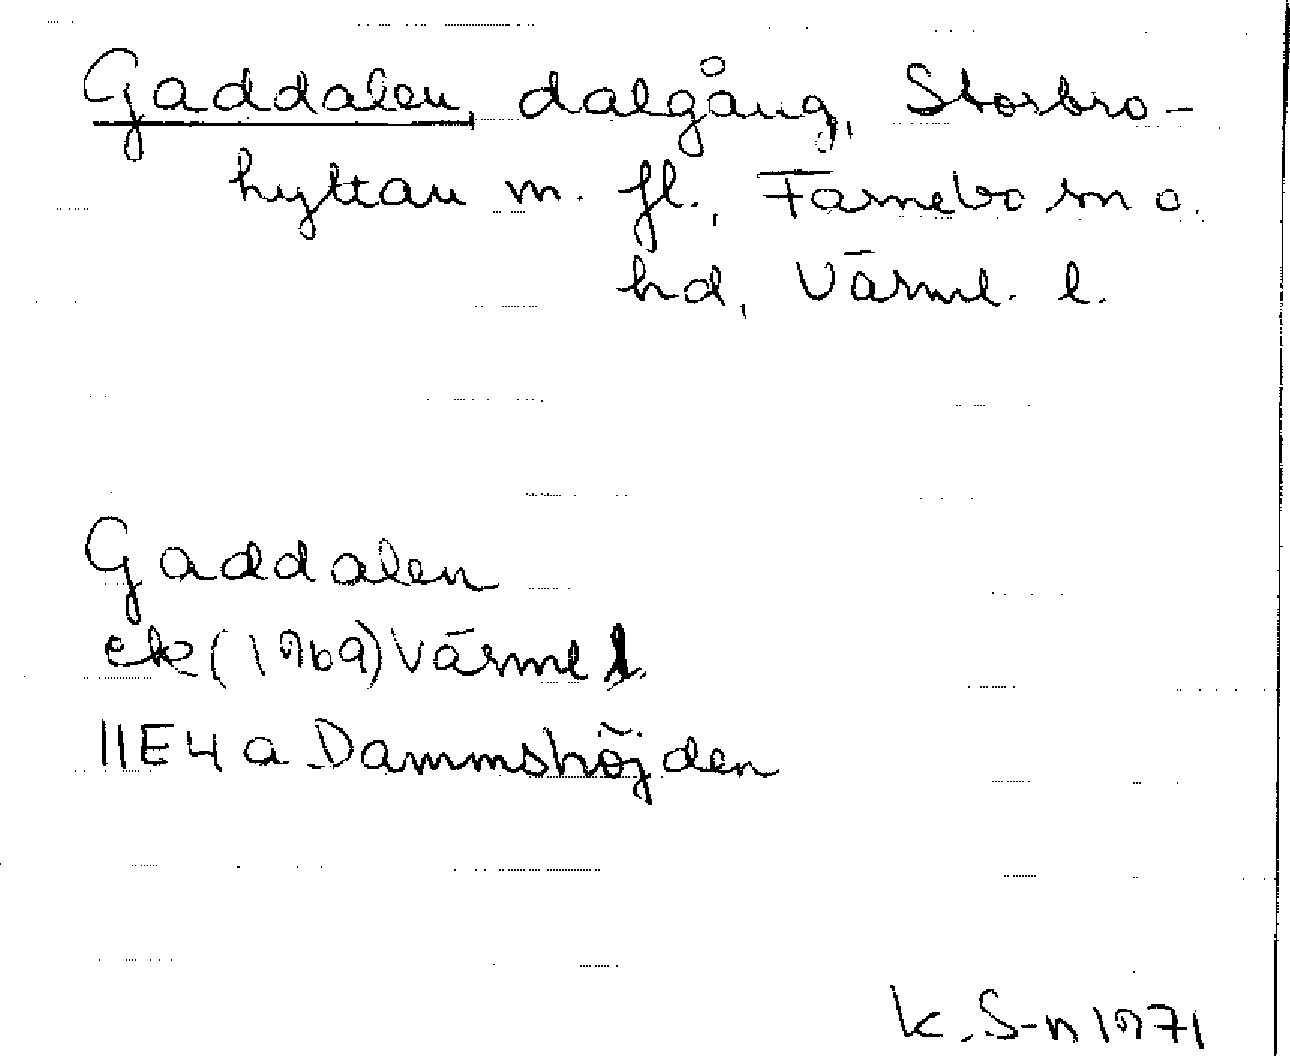 Gaddalen, dalgång, Storbro-
hyttan m. fl., Färnebo sn o.
hd, Värml. l.
Gaddalen
ek (1969) Värml l.
11E4a Dammshöjden
K. S-n 1971